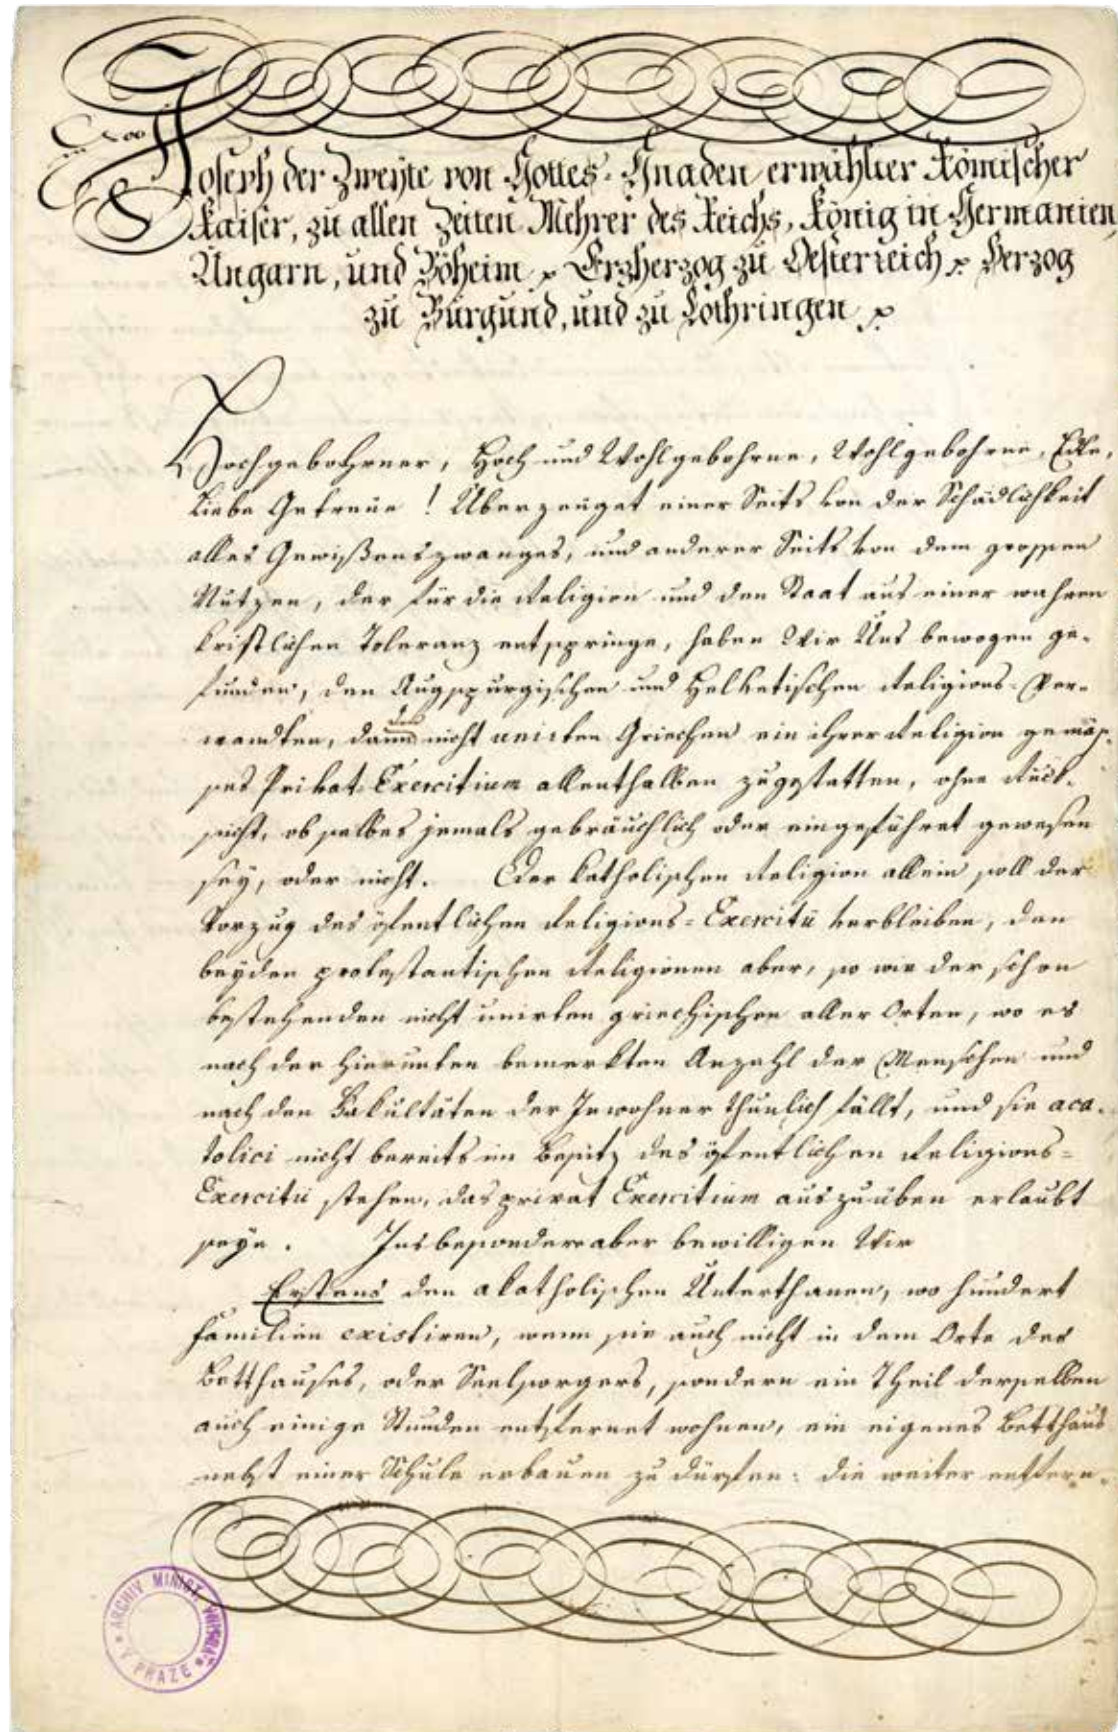 Joseph der Zweyte von Gottes-Gnaden erwählter Römischer
Kaiser, zu allen Zeiten Mehrer des Reichs, König in Germanien,
Ungarn, und Böheim, Erzherzog zu Oesterreich, Herzog
zu Burgund, und zu Lothringen
Hochgebohrner, Hoch und Wohlgebohrne, Wohlgebohrne, Edle,
Liebe Getreue! Überzeuget einer Seits von der Schädlichkeit
alles Gewißenszwanges, und anderer Seits von dem grossen
Nutzen, der für die Religion und den Staat aus einer wahren
kristlichen Toleranz entspringe, haben Wir Uns bewogen ge-
funden, den Augspurgischen und Helvetischen Religions-Ver-
wandten, dann nicht unirten Griechen ein ihrer Religion gemäs-
ses Privat-Exercitium allenthalben zugestatten, ohne Rück-
sicht, ob selbes jemals gebräuchlich oder eingeführet gewesen
sey, oder nicht. Der katholischen Religion allein soll der
Vorzug des öfentlichen Religions-Exercitii verbleiben, den
beyden protestantischen Religionen aber, so wie der schon
bestehenden nicht unirten griechischen aller Orten, wo es
nach der hierunten bemerkten Anzahl der Menschen und
nach den Fakultäten der Inwohner thunlich fällt, und sie aca-
tolici nicht bereits im Besitz des öfentlichen Religions-
Exercitii stehen, das privat Exercitium auszuüben erlaubt
seye. Insbesondere aber bewilligen Wir
Erstens den akatholischen Unterthanen, wo hundert
Familien existiren, wenn sie auch nicht in dem Orte des
Betthauses, oder Seelsorgers, sondern ein Theil derselben
auch einige Stunden entfernet wohnen, ein eigenes Betthaus
nebst einer Schule erbauen zu dürfen: die weiter entfern-
ARCHIV MINIST. VNITRA
V PRAZE